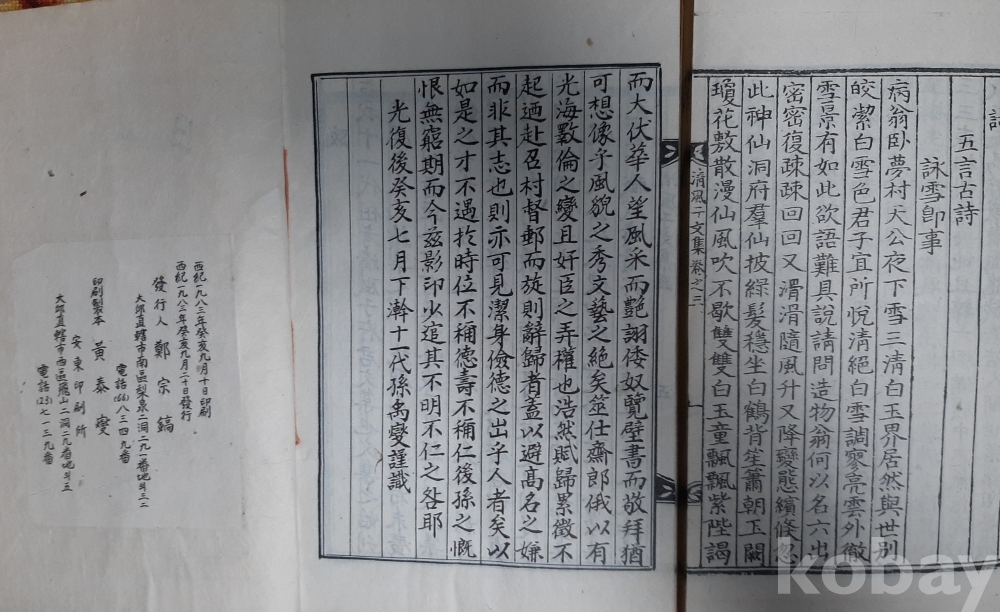 詩
五言古詩
詠雪卽事
病翁卧夢村天公夜下雪三淸白玉界居然與世別
皎潔白雪色君子宜所悅淸絕白雪調寥亮雲外徹
雪景有如此欲語難具說請問造物翁何以名六出
密密復疎疎回回又滑滑隨風升又降變態繽倏忽
此神仙洞府羣仙披綠髮穩坐白鶴背笙簫朝玉闕
瓊花敷散漫仙風吹不歇雙雙白玉童飄飄紫陛謁
淸風子文集卷之三
而大伏華人望風采而艶詡倭奴覽壁書而敬拜猶
可想像乎風貌之秀文藝之絕矣筮仕齋郎俄以有
光海斁倫之變且奸臣之弄權也浩然賦歸累徵不
起迺赴召村督郵而旋則辭歸者盖以避高名之嫌
而非其志也則亦可見潔身儉德之出乎人者矣以
如是之才不遇於時位不稱德壽不稱仁後孫之慨
恨無窮期而今玆影印少追其不明不仁之咎耶
光復後癸亥七月下澣十一代孫禹燮謹識
西紀一九八三年癸亥九月十日印刷
西紀一九八三年癸亥九月二十日發行
發行人 鄭宗鎬
大邱直轄市南區梨泉二洞二九一番地의三二
電話(66)八三四九番
安東印刷所
印刷製本 黃泰燮
大邱直轄市西區飛山二洞二九番地의五
電話(23)七一三九番
kobay